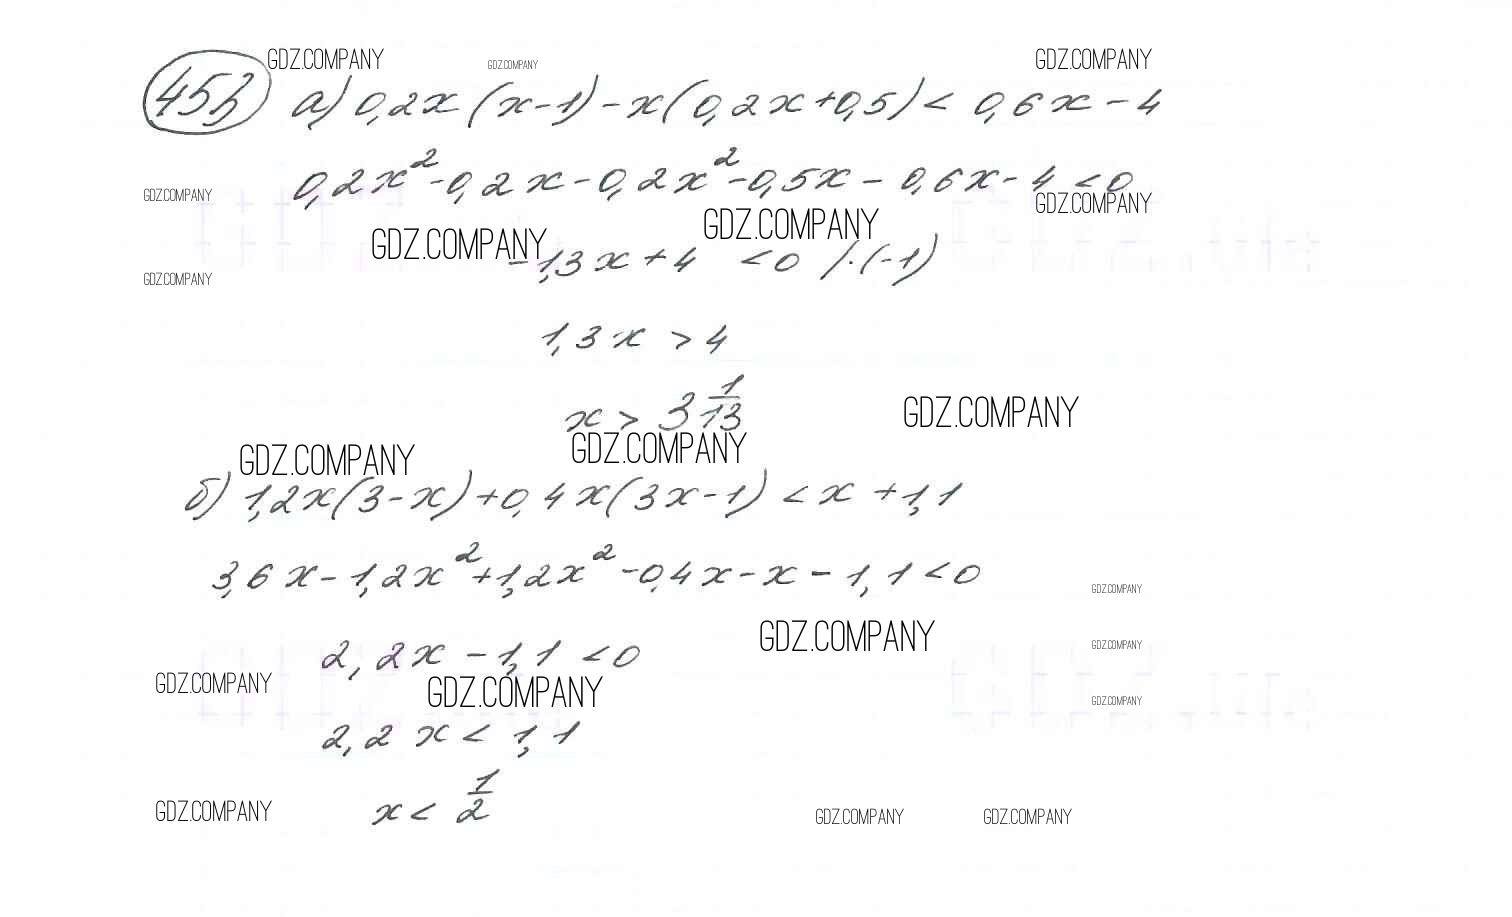 GDZ.COMPANY GDZ.COMPANY GDZ.COMPANY
453 а) 0,2x(x-1)-x(0,2x+0,5)< 0,6x-4
0,2x²-0,2x-0,2x²-0,5x-0,6x-4<0
GDZ.COMPANY GDZ.COMPANY
GDZ.COMPANY GDZ.COMPANY
-1,3x+4 <0 /·(-1)
GDZ.COMPANY
1,3x >4
x> 3 1/13
GDZ.COMPANY
GDZ.COMPANY GDZ.COMPANY
б) 1,2x(3-x)+0,4x(3x-1)<x+1,1
3,6x-1,2x²+1,2x²-0,4x-x-1,1<0
GDZ.COMPANY
GDZ.COMPANY
GDZ.COMPANY
2,2x-1,1<0
GDZ.COMPANY GDZ.COMPANY
GDZ.COMPANY
2,2x<1,1
x< 1/2
GDZ.COMPANY GDZ.COMPANY GDZ.COMPANY